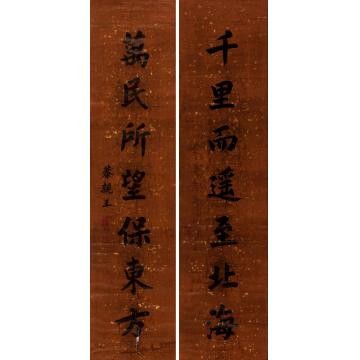 千里而遥至北海
萬民所望保東方
恭親王